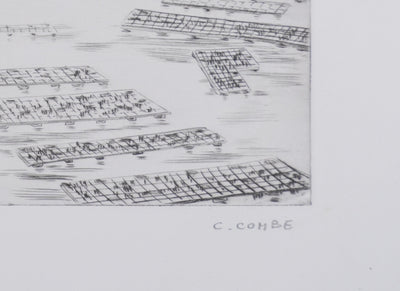 C. COMBE